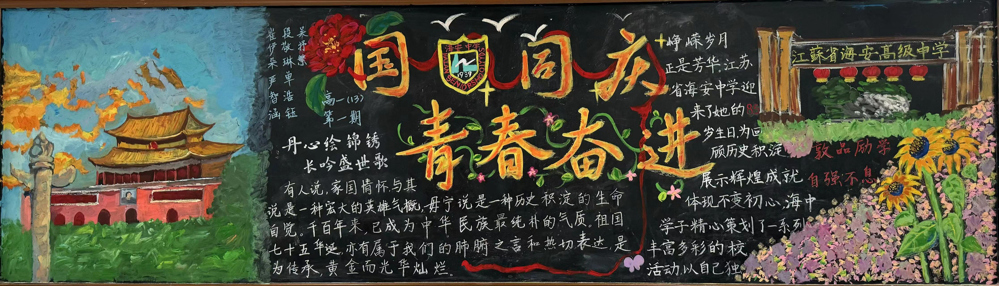 国 同庆
青春奋进
海安中学
1939
高一(13)
第一期
丹心绘锦绣
长吟盛世歌
有人说,家国情怀与其
说是一种宏大的英雄气概,毋宁说是一种历史积淀的生命
自觉。千百年来,已成为中华民族最纯朴的气质。祖国
七十五华诞,亦有属于我们的肺腑之言和热切表达,是
为传承,黄金而光华灿烂。
峥嵘岁月
正是芳华,江苏
省海安中学迎
来了她的
岁生日,为回
顾历史积淀
展示辉煌成就
体现不变初心,海中
学子精心策划了一系列
丰富多彩的校
活动以自己独
江苏省海安高级中学
敦品励学
自强不息